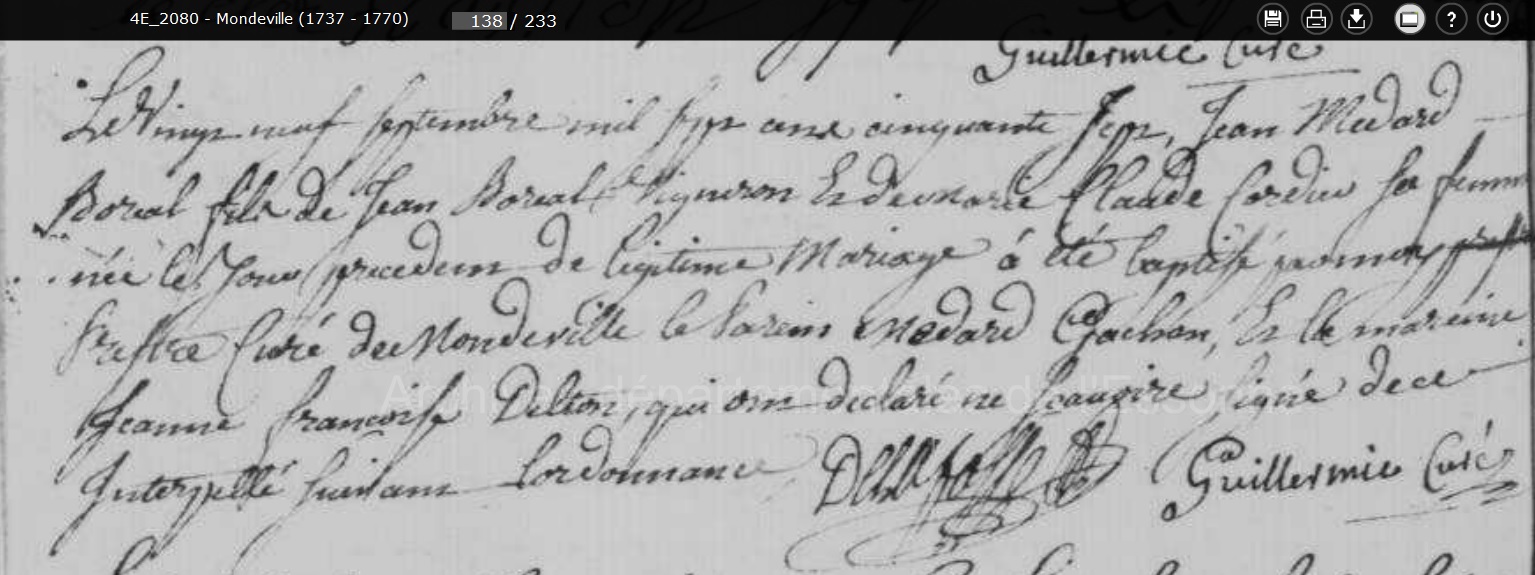 4E_2080 - Mondeville (1737 - 1770) 138 / 233
Guillermic Curé
Le Vingt neuf septembre mil sept cens cinquante sept, Jean Medard
Boreal fils de Jean Boreal Vigneron Et de marie Claude Cordier sa femme
née le Jour precedent de legitime Mariage á été baptisé par moy
Prestre Curé de Mondeville le Parein medard Gachon, Et la mareine
Jeanne francoise Delton, qui ont declaré ne scavoire signé de ce
Interpellé suivant Lordonnance Guillermic Curé
Archives départementales de l'Essonne